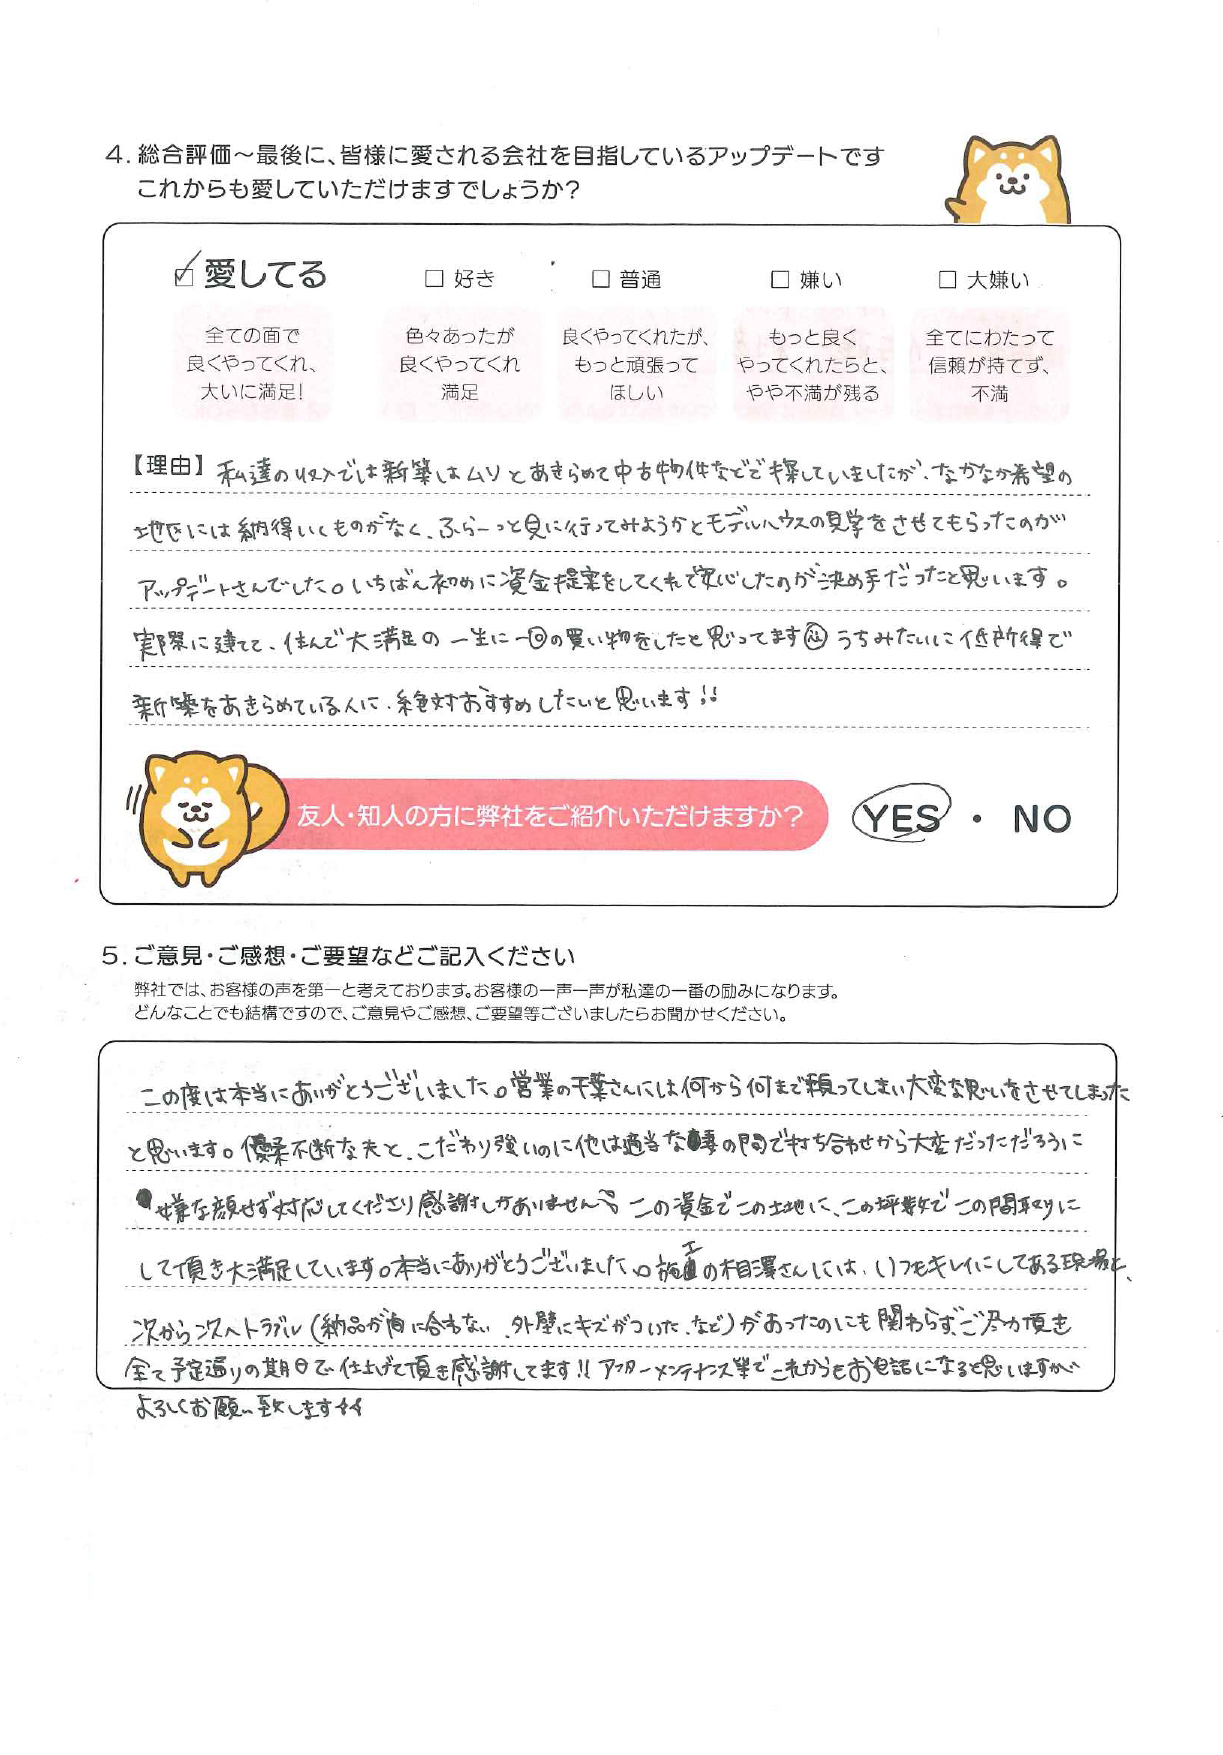 4. 総合評価～最後に、皆様に愛される会社を目指しているアップデートです
これからも愛していただけますでしょうか？
愛してる
好き
普通
嫌い
大嫌い
全ての面で
良くやってくれ、
大いに満足！
色々あったが
良くやってくれ
満足
良くやってくれたが、
もっと頑張って
ほしい
もっと良く
やってくれたらと、
やや不満が残る
全てにわたって
信頼が持てず、
不満
【理由】私達の収入では新築はムリとあきらめて中古物件などで探していましたが、なかなか希望の
地区には納得いくものがなく、ふらーっと見に行ってみようかとモデルハウスの見学をさせてもらったのが
アップデートさんでした。いちばん初めに資金提案をしてくれて安心したのが決め手だったと思います。
実際に建てて、住んで大満足の一生に一回の買い物をしたと思ってます うちみたいに低所得で
新築をあきらめている人に、絶対おすすめしたいと思います!!
友人・知人の方に弊社をご紹介いただけますか？
YES ・ NO
5. ご意見・ご感想・ご要望などご記入ください
弊社では、お客様の声を第一と考えております。お客様の一声一声が私達の一番の励みになります。
どんなことでも結構ですので、ご意見やご感想、ご要望等ございましたらお聞かせください。
この度は本当にありがとうございました。営業の千葉さんには何から何まで頼ってしまい大変な思いをさせてしまった
と思います。優柔不断な夫と、こだわり強いのに他は適当な妻の間で打ち合わせから大変だっただろうに
嫌な顔せず対応してくださり感謝しかありません この資金でこの土地に、この坪数でこの間取りに
して頂き大満足しています。本当にありがとうございました。施工の相澤さんには、いつもキレイにしてある現場と、
次から次へトラブル（納品が間に合わない、外壁にキズがついた、など）があったのにも関わらず、ご尽力頂き
全て予定通りの期日で仕上げて頂き感謝してます!! アフターメンテナンス等でこれからもお電話になると思いますが
よろしくお願い致します